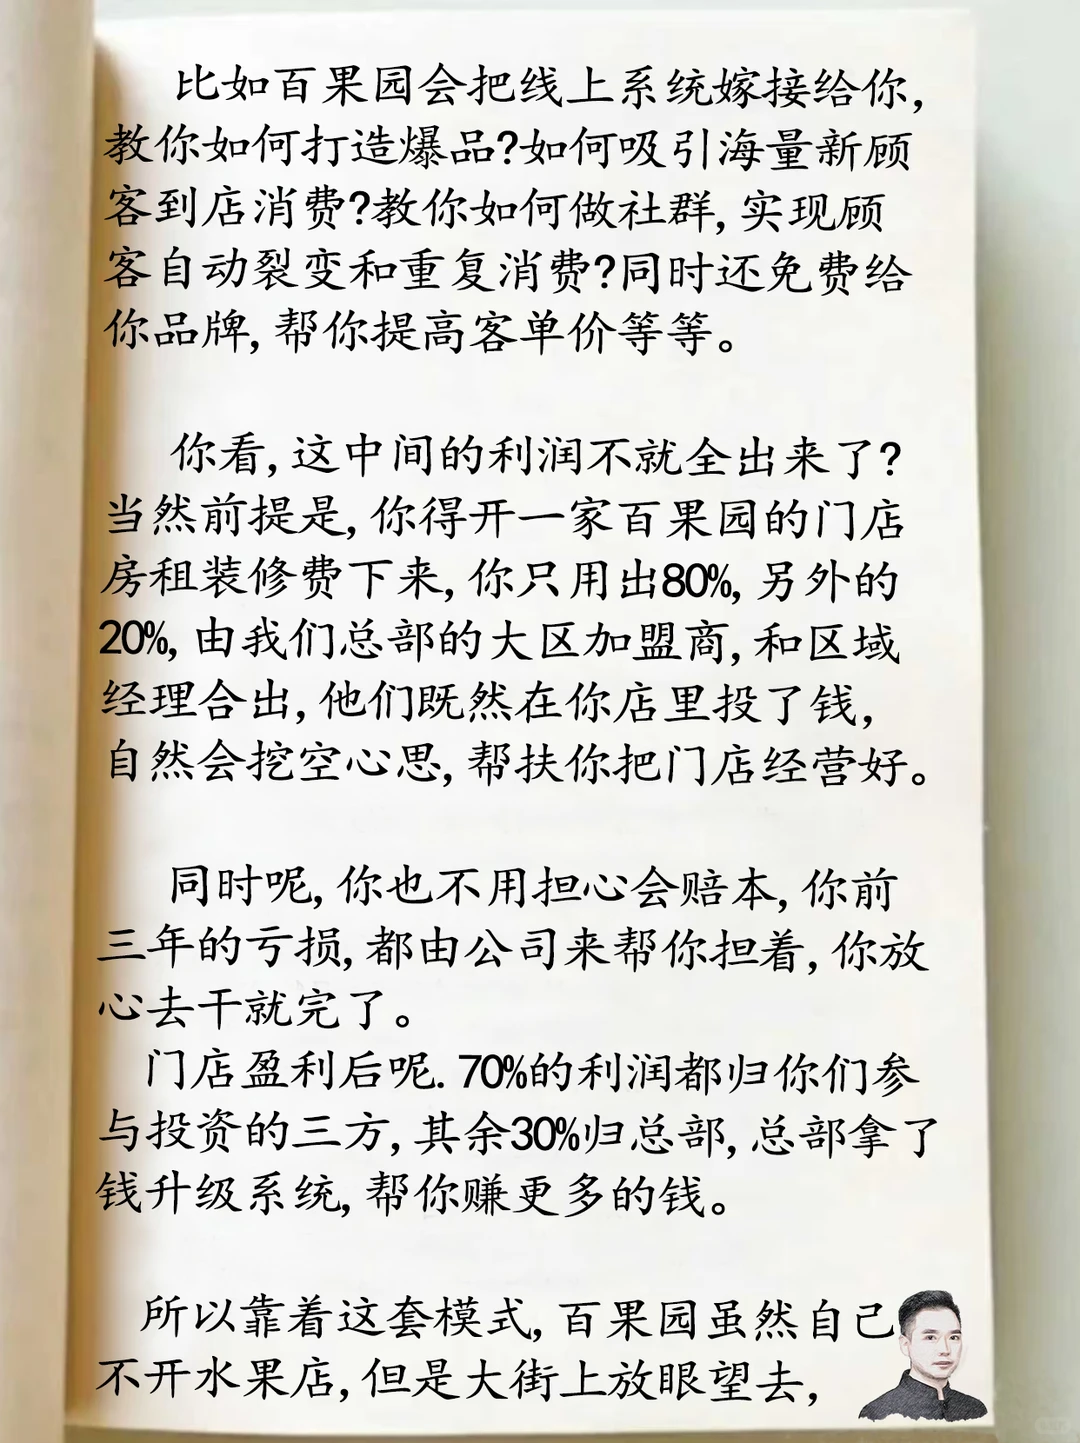 比如百果园会把线上系统嫁接给你,
教你如何打造爆品?如何吸引海量新顾
客到店消费?教你如何做社群,实现顾
客自动裂变和重复消费?同时还免费给
你品牌,帮你提高客单价等等。
你看,这中间的利润不就全出来了?
当然前提是,你得开一家百果园的门店
房租装修费下来,你只用出80%,另外的
20%,由我们总部的大区加盟商,和区域
经理合出,他们既然在你店里投了钱,
自然会挖空心思,帮扶你把门店经营好。
同时呢,你也不用担心会赔本,你前
三年的亏损,都由公司来帮你担着,你放
心去干就完了。
门店盈利后呢.70%的利润都归你们参
与投资的三方,其余30%归总部,总部拿了
钱升级系统,帮你赚更多的钱。
所以靠着这套模式,百果园虽然自己
不开水果店,但是大街上放眼望去,